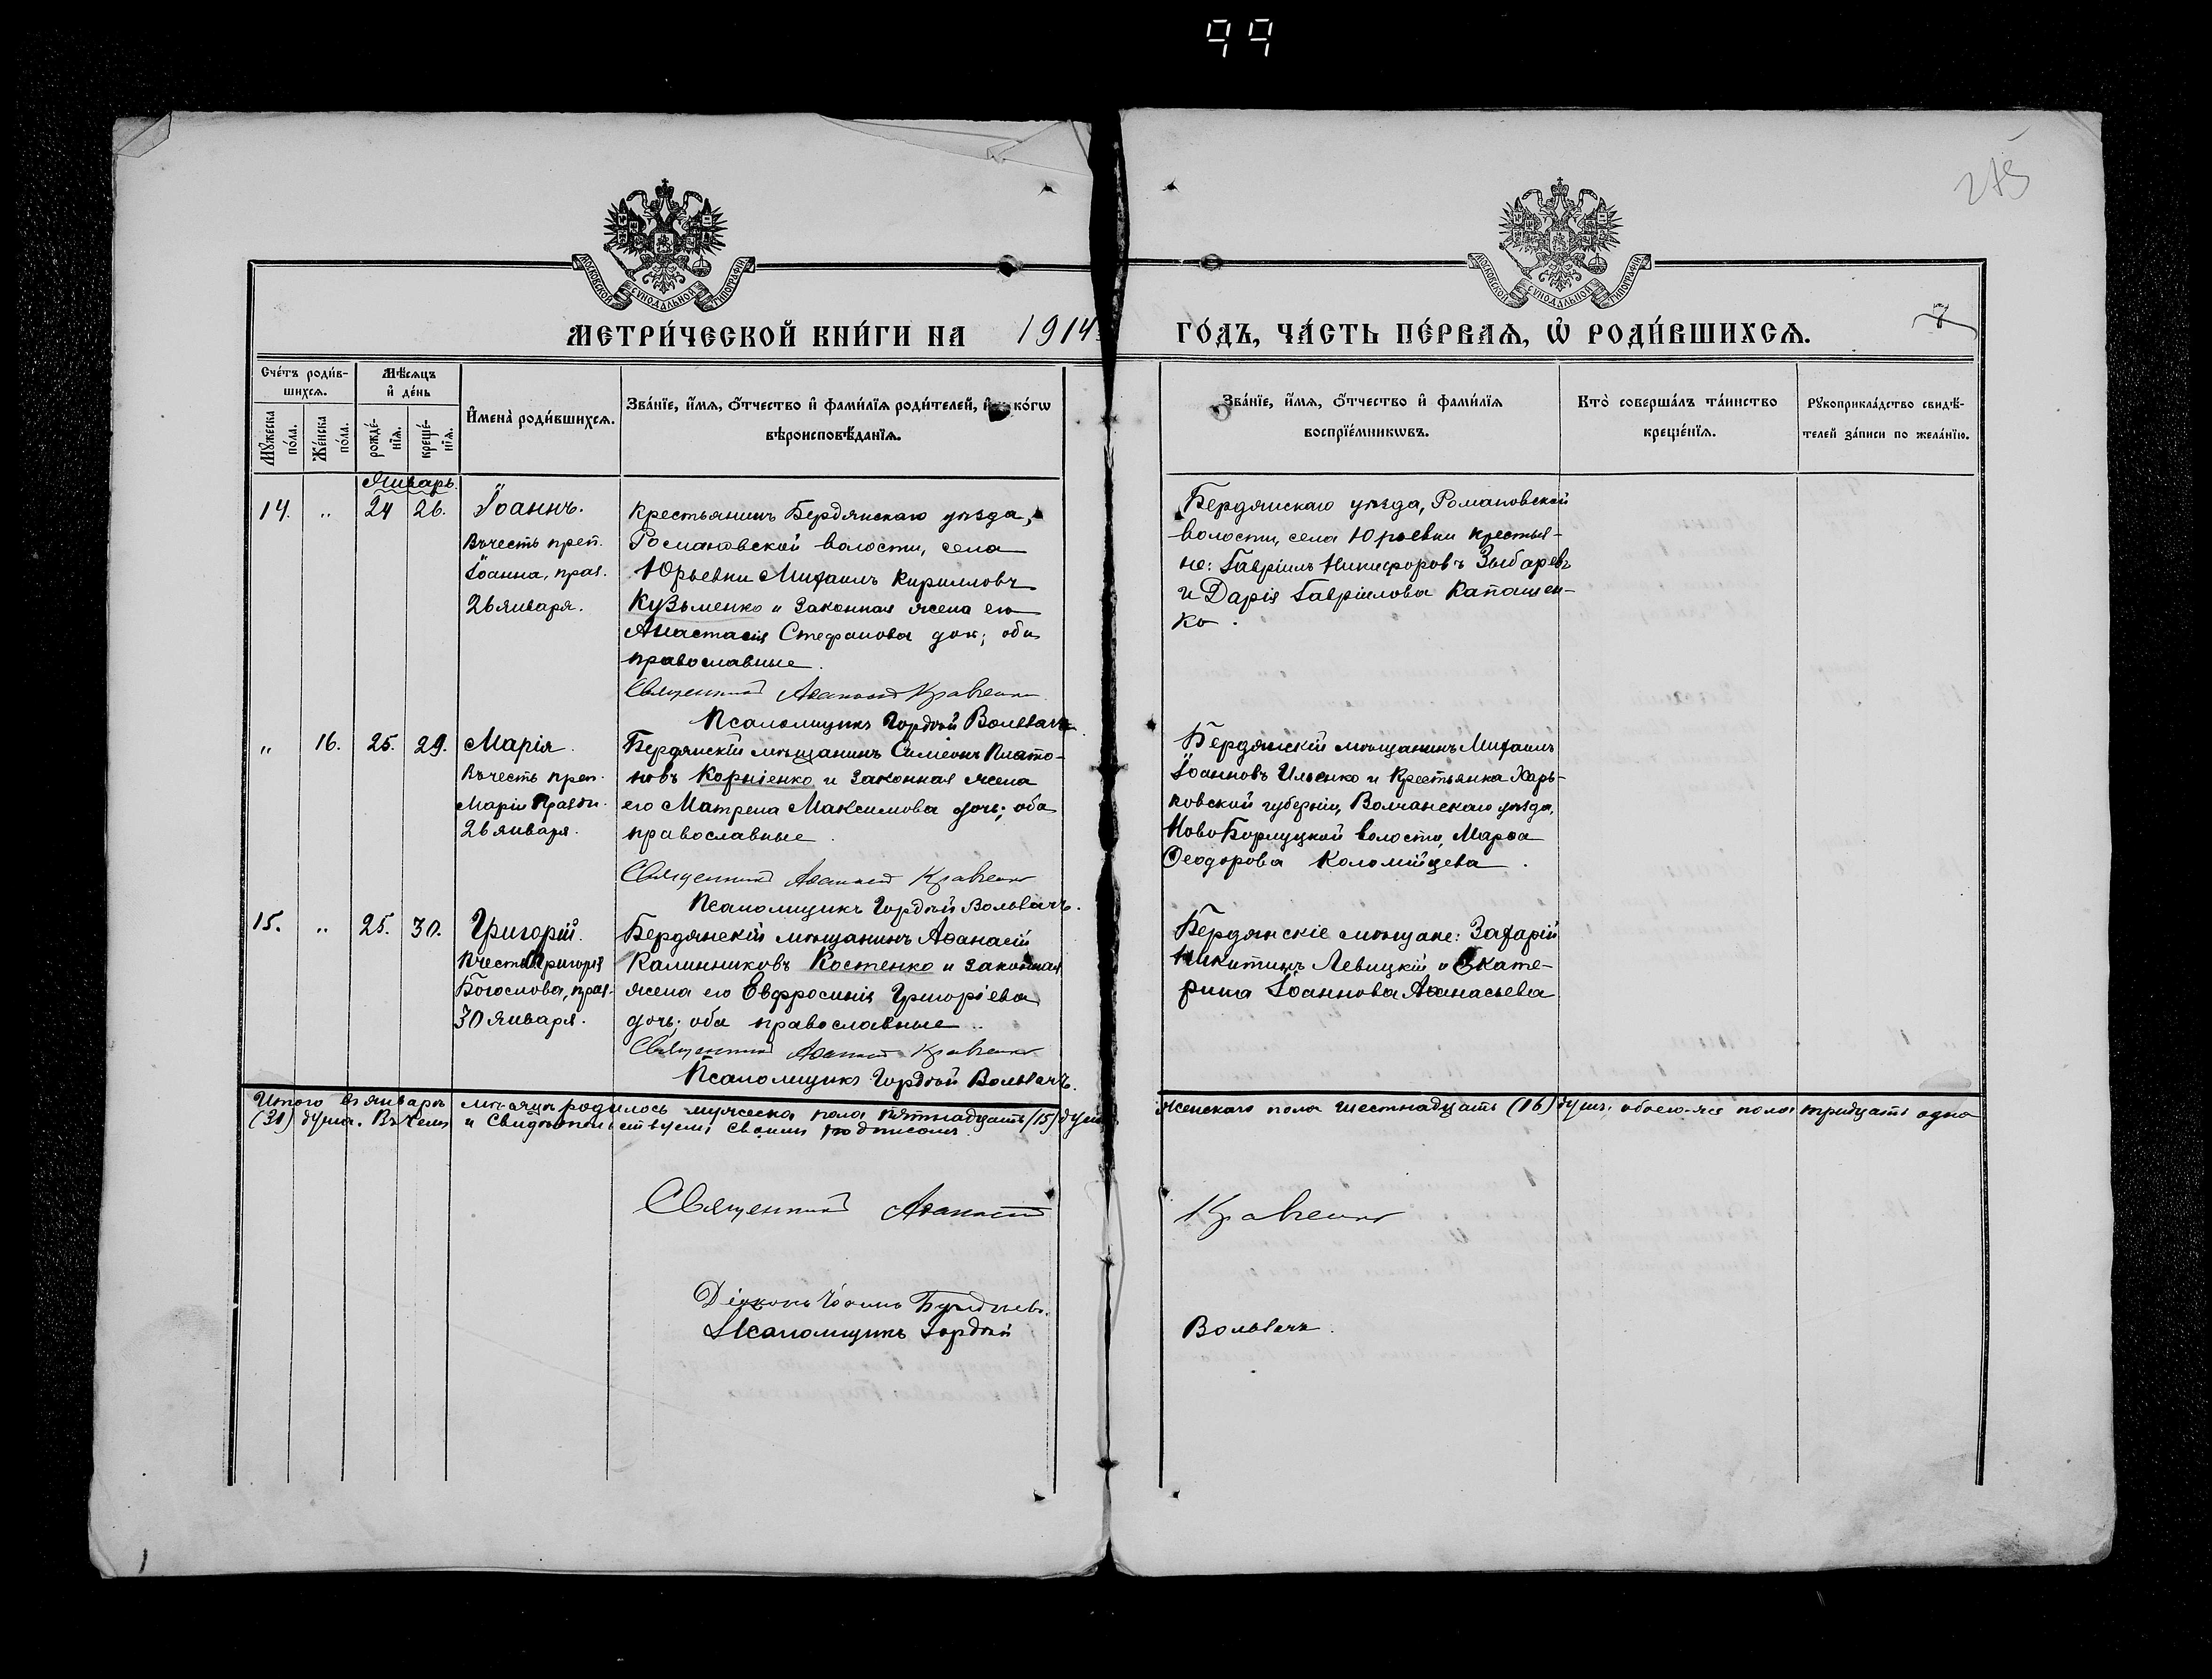 99
275
МОСКОВСКОЙ СѴНОДАЛЬНОЙ ТИПОГРАФІИ
МОСКОВСКОЙ СѴНОДАЛЬНОЙ ТИПОГРАФІИ
МЕТРИ́ЧЕСКОЙ КНИ́ГИ НА 1914 ГО́ДЪ, ЧА́СТЬ ПЕ́РВАѦ, Ѡ҆ РОДИ́ВШИХСѦ.
7
Сче́тъ роди́в-
шихсѧ.
Мѣ́сѧцъ
и҆ де́нь
Мꙋ́жеска
по́ла.
Же́нска
по́ла.
рожде́-
нїѧ.
креще́-
нїѧ.
И҆мена̀ роди́вшихсѧ.
Зва́нїе, и҆́мѧ, ѻ҆́тчество и҆ фами́лїѧ роди́телей, и҆ ко́гѡ
вѣроисповѣ́данїѧ.
Зва́нїе, и҆́мѧ, ѻ҆́тчество и҆ фами́лїѧ
воспрїе́мникѡвъ.
Кто̀ соверша́лъ та́инство
креще́нїѧ.
Рꙋкоприкла́дство свидѣ́-
телей за́писи по жела́нїю.
Январь.
14. „ 24 26. Іоаннъ.
Въ честь преп.
Іоанна, праз.
26 января.
Крестьянинъ Бердянскаго уѣзда,
Романовской волости, села
Юрьевки Михаилъ Кирилловъ
Кузьменко и законная жена его
Анастасія Стефанова дочь; оба
православные.
Священникъ Аѳанасій Кравченко
Псаломщикъ Гордѣй Вольвачъ.
Бердянскаго уѣзда, Романовской
волости, села Юрьевки крестья-
не: Гавріилъ Никифоровъ Зыбаревъ
и Дарія Гавріилова Капашен-
ко.
„ 16. 25. 29. Марія.
Въ честь преп.
Маріи празд.
26 января.
Бердянскій мѣщанинъ Симеонъ Плато-
новъ Корніенко и законная жена
его Матрена Максимова дочь; оба
православные.
Священникъ Аѳанасій Кравченко
Псаломщикъ Гордѣй Вольвачъ.
Бердянскій мѣщанинъ Михаилъ
Іоанновъ Ильенко и крестьянка Харь-
ковской губерніи, Волчанскаго уѣзда,
Ново Бурлуцкой волости, Марѳа
Ѳеодорова Коломійцева.
15. „ 25. 30. Григорій.
В честь Григорія
Богослова, праз.
30 января.
Бердянскій мѣщанинъ Аѳанасій
Калинниковъ Костенко и законная
жена его Евфросинія Григоріева
дочь; оба православные.
Священникъ Аѳанасій Кравченко
Псаломщикъ Гордѣй Вольвачъ.
Бердянскіе мѣщане: Захарій
Никитинъ Левицкій и Екате-
рина Іоаннова Аѳанасьева
Итого въ январѣ мѣсяцѣ родилось мужеска пола пятнадцать (15) душъ женскаго пола шестнадцать (16) душъ, обоего же пола тридцать одна
(31) душа. Въ чемъ и свидѣтельствуемъ своимъ подписомъ.
Священникъ Аѳанасій Кравченко
Діаконъ Іоаннъ
Псаломщикъ Гордѣй Вольвачъ.